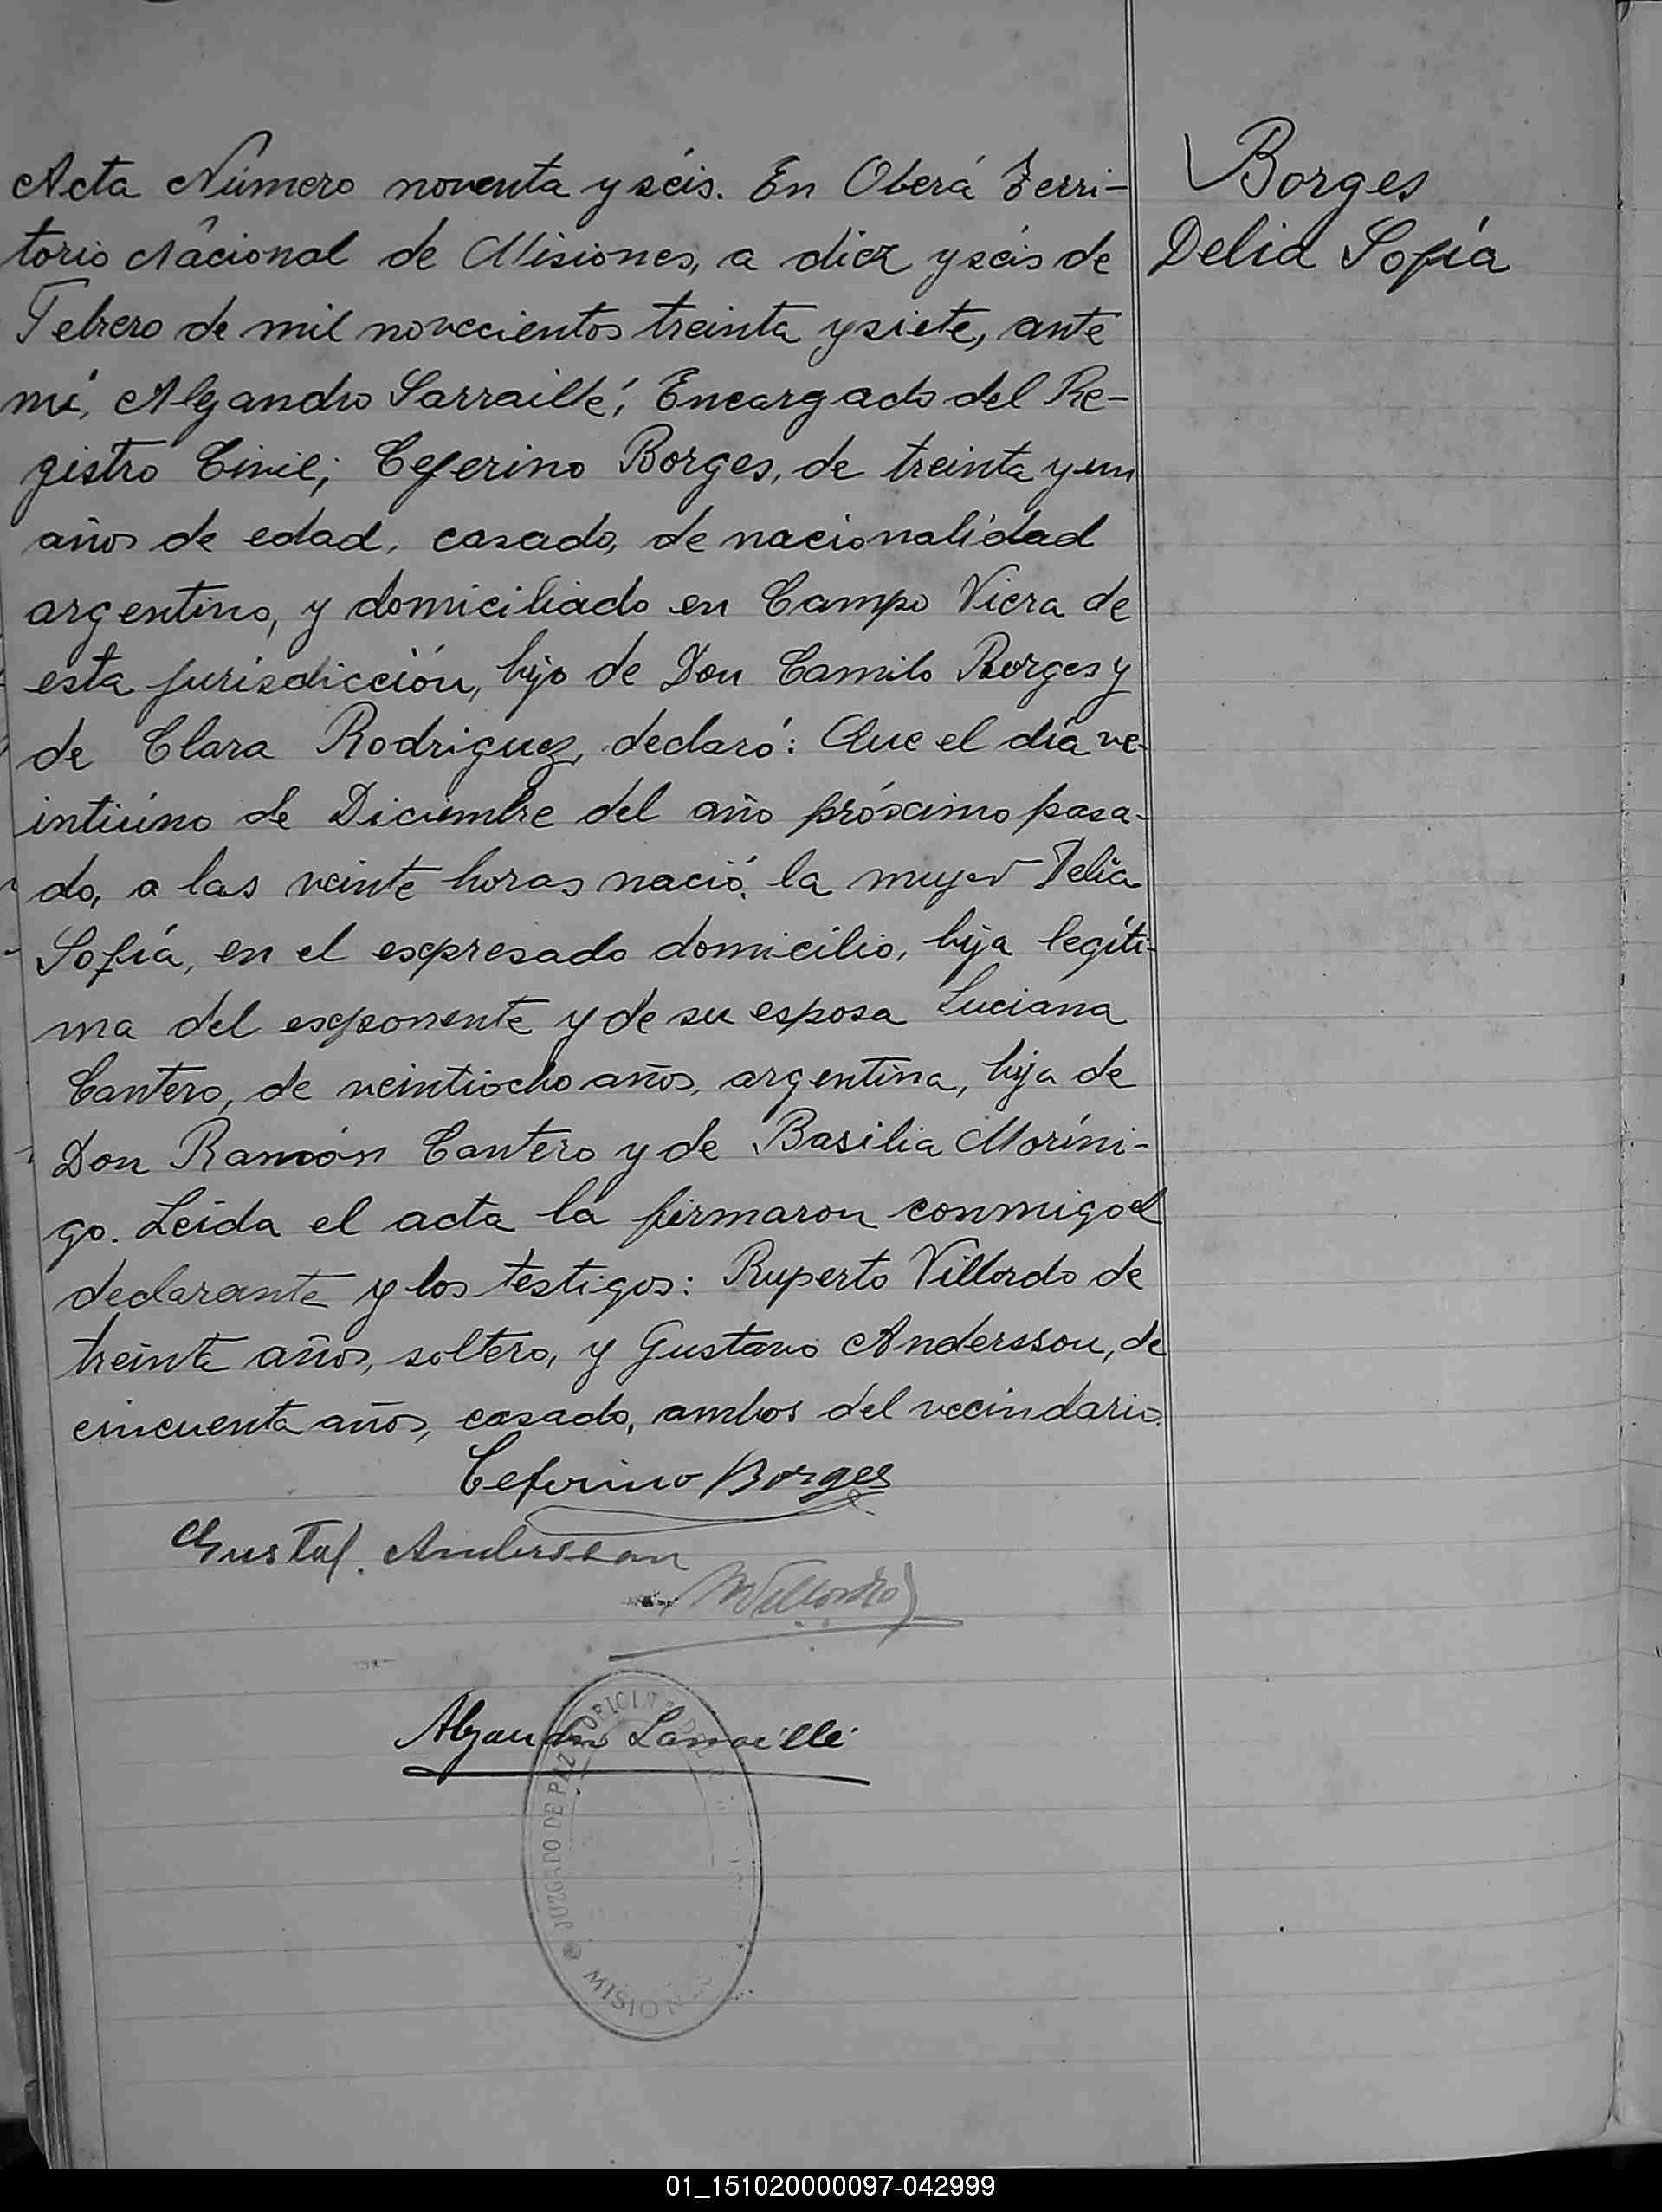 Acta Número noventa y séis. En Oberá Terri-
torio Nacional de Misiones, a diez y séis de
Febrero de mil novecientos treinta y siete, ante
mi, Alejandro Sarraillé, Encargado del Re-
gistro Civil; Ceferino Borges, de treinta y un
años de edad, casado, de nacionalidad
argentino, y domiciliado en Campo Viera de
esta jurisdicción, hijo de Don Camilo Borges y
de Clara Rodriguez, declaró: Que el día ve-
intiúno de Diciembre del año próximo pasa-
do, a las veinte horas nació la mujer Delia
Sofía, en el expresado domicilio, hija legíti-
ma del exponente y de su esposa Luciana
Cantero, de veintiocho años, argentina, hija de
Don Ramón Cantero y de Basilia Moríni-
go. Leída el acta la firmaron conmigo el
declarante y los testigos: Ruperto Villordo de
treinta años, soltero, y Gustavo Andersson, de
cincuenta años, casado, ambos del vecindario.
Borges
Delia Sofía
Ceferino Borges
Gustaf. Andersson
Villordo
Alejandro Sarraillé
JUZGADO DE PAZ OFICINA DEL
MISIONES
01_151020000097-042999